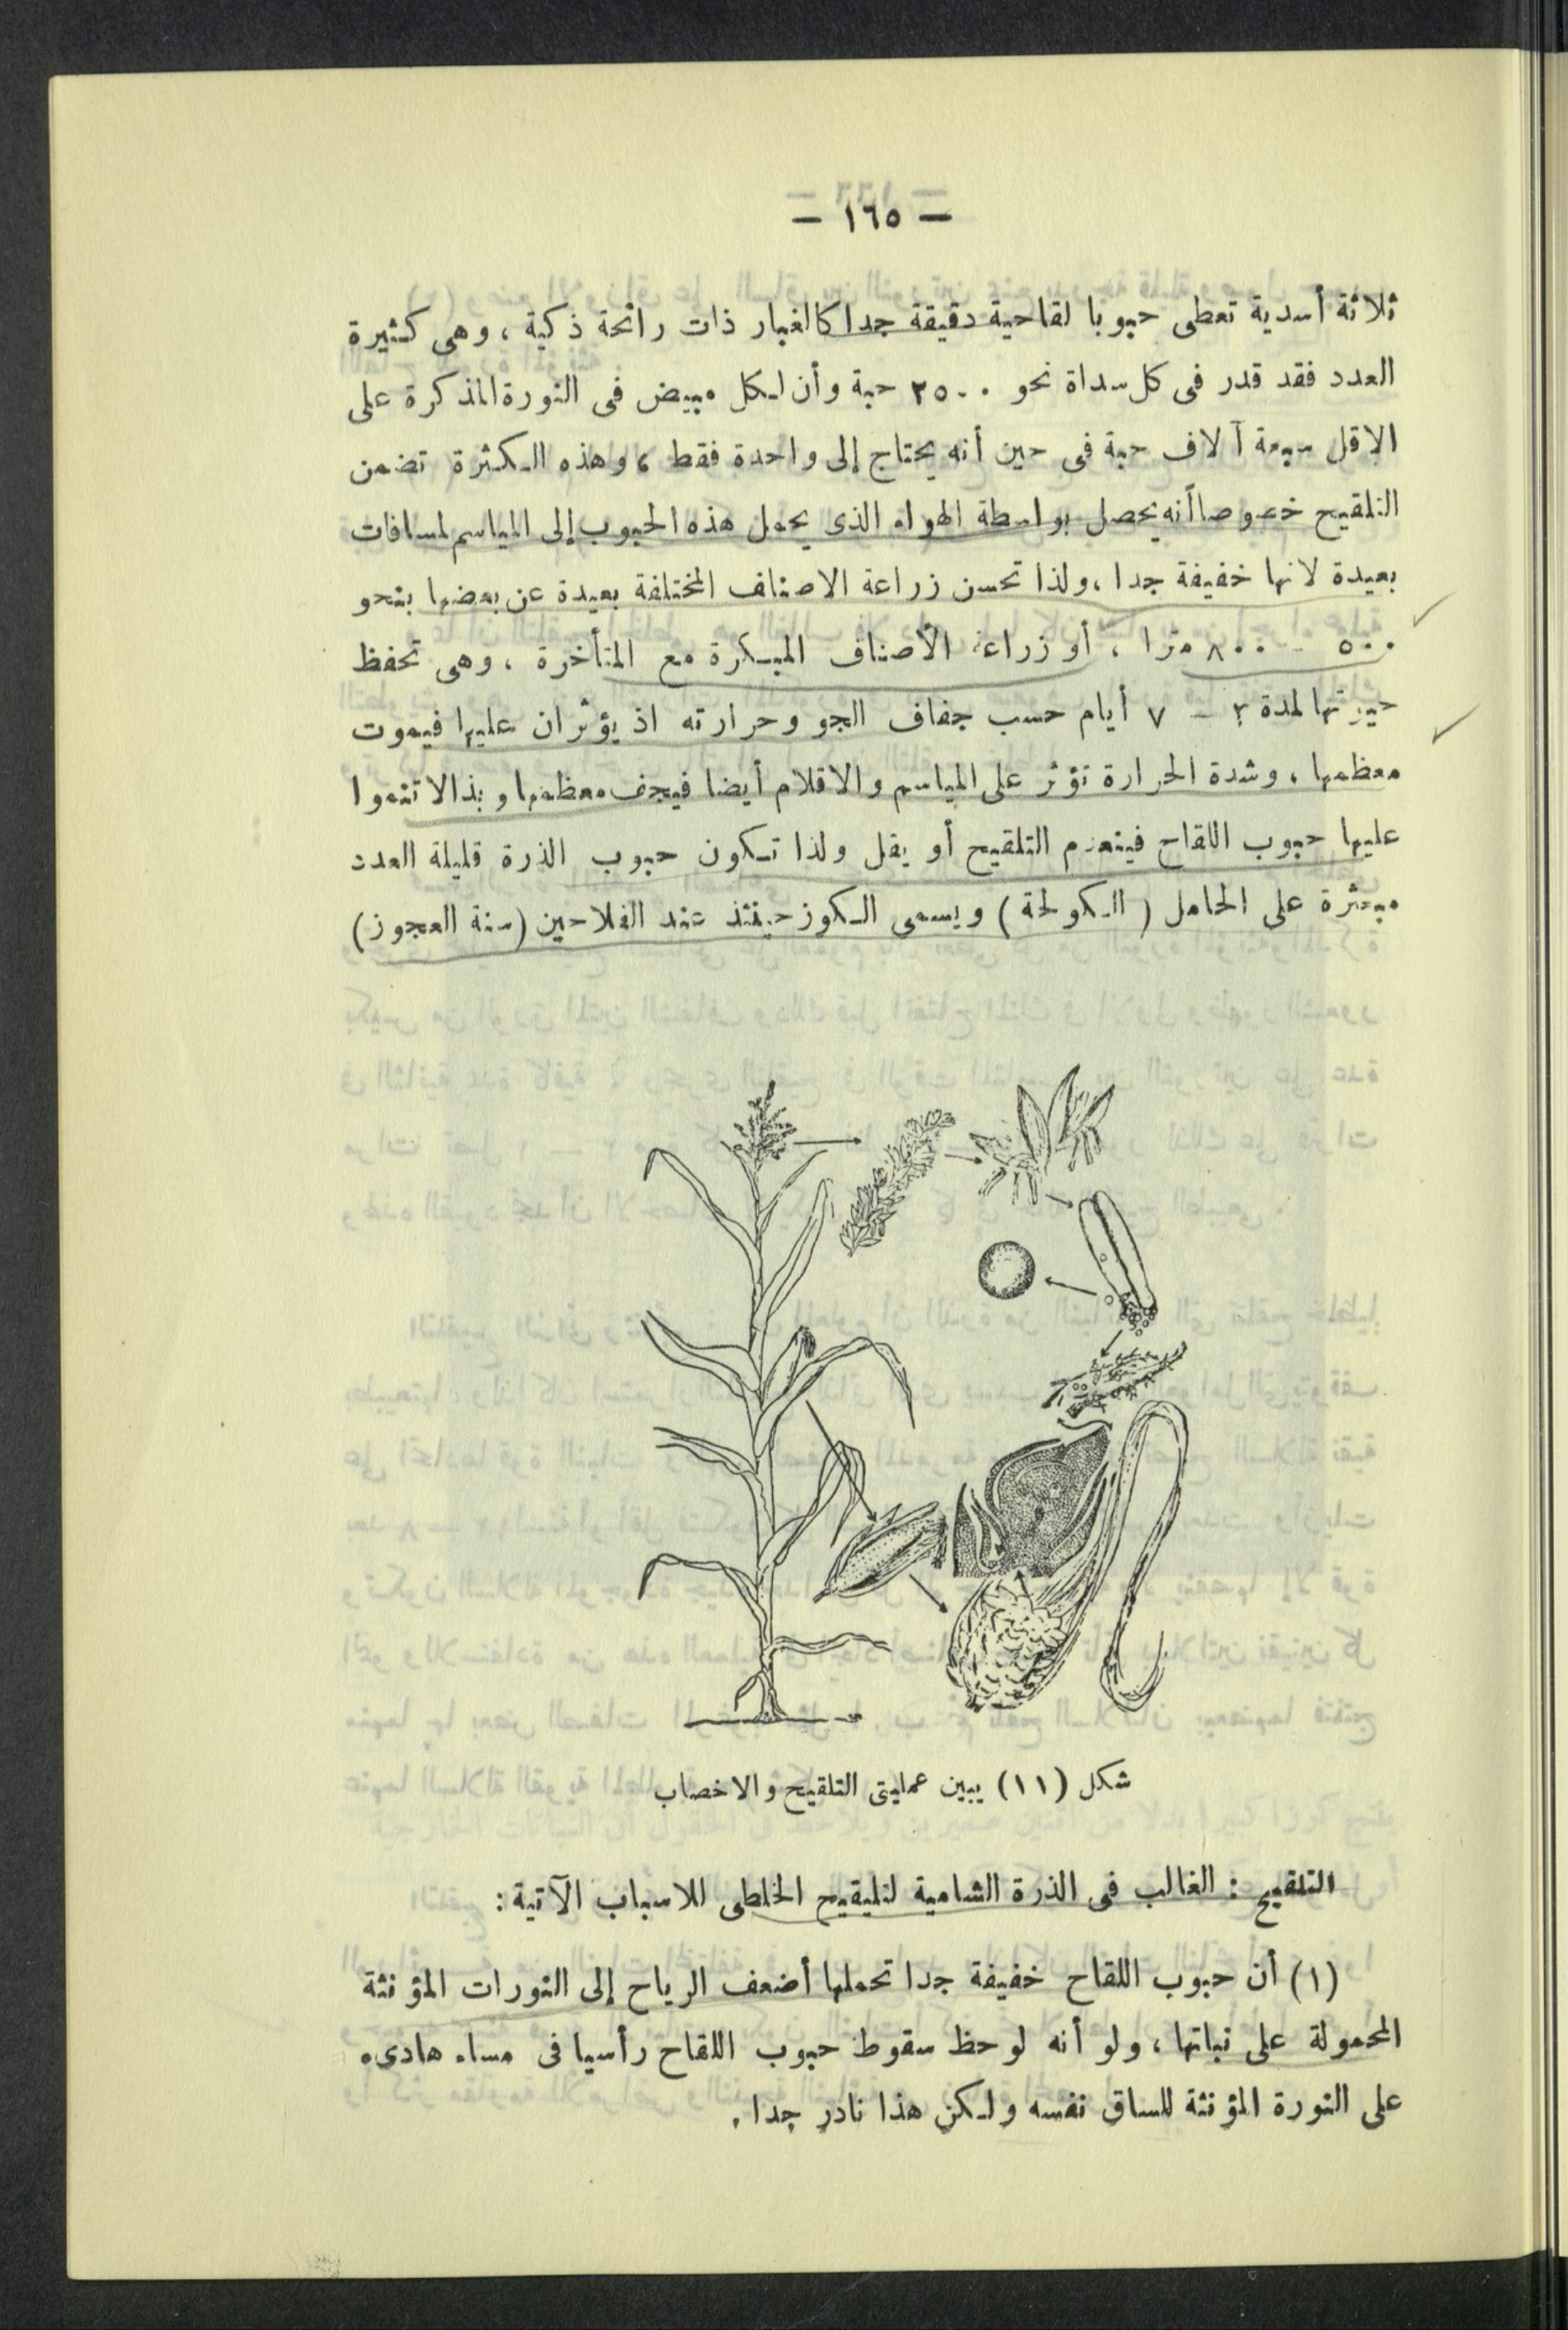 — ١٦٥ —
ثلاثة أسدية تعطى حبوبا لقاحية دقيقة جدا كالغبار ذات رائحة ذكية ، وهى كثيرة
العدد فقد قدر فى كل سداة نحو ٢٥٠٠ حبة وأن لكل مبيض فى النورة المذكرة على
الاقل سبعة آلاف حبة فى حين أنه يحتاج إلى واحدة فقط ، وهذه الكثرة تضمن
التلقيح خصوصا أنه يحصل بواسطة الهواء الذى يحمل هذه الحبوب إلى المياسم لمسافات
بعيدة لانها خفيفة جدا ، ولذا تحسن زراعة الاصناف المختلفة بعيدة عن بعضها بنحو
٥٠٠ – ٨٠٠ مترا ، أو زراعة الأصناف المبكرة مع المتأخرة ، وهى تحفظ
حيويتها لمدة – ٧ أيام حسب جفاف الجو وحرارته اذ يؤثران عليها فيموت
معظمها ، وشدة الحرارة تؤثر على المياسم والاقلام أيضا فيجف معظمها وبذا لا تنموا
عليها حبوب اللقاح فينعدم التلقيح أو يقل ولذا تكون حبوب الذرة قليلة العدد
مبعثرة على الحامل ( الكولحة ) ويسمى الكوز حينئذ عند الفلاحين (سنة العجوز)
شكل (١١) يبين عمليتى التلقيح والاخصاب
التلقيح : الغالب فى الذرة الشامية لتليقيح الخلطى للاسباب الآتية :
(١) أن حبوب اللقاح خفيفة جدا تحملها أضعف الرياح إلى النورات المؤنثة
المحمولة على نباتها ، ولو أنه لوحظ سقوط حبوب اللقاح رأسيا فى مساء هادىء
على النورة المؤنثة للساق نفسه ولكن هذا نادر جدا .